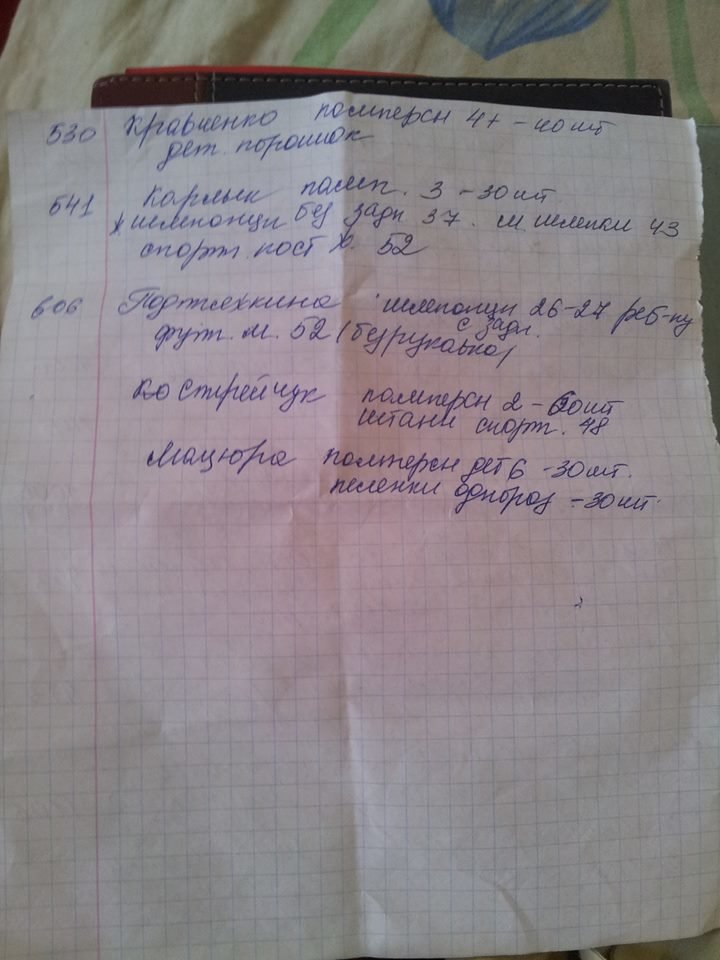 530 Кравченко памперсы 4+ - 40 шт
дет. порошок
541 Карлык памп. 3 - 30 шт
шлепонцы без задн 37. м. шлепки 43
спорт. кост х. 52
606 Подтяжкина шлепонцы 26-27 реб-ку
с задн.
фут. м. 52 (без рукавко)
Кострейчук памперсы 2 - 60 шт
штаны спорт. 48
Мацюра памперсы дет 6 - 30 шт.
пеленки однораз - 30 шт.